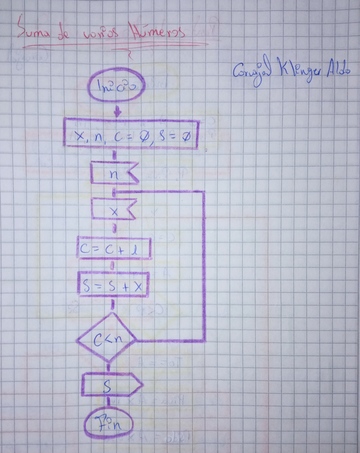 Suma de varios Números
Carvajal Klinger Aldo
Inicio
x, n, C = 0, S = 0
n
x
C = C + 1
S = S + X
C < n
S
Fin